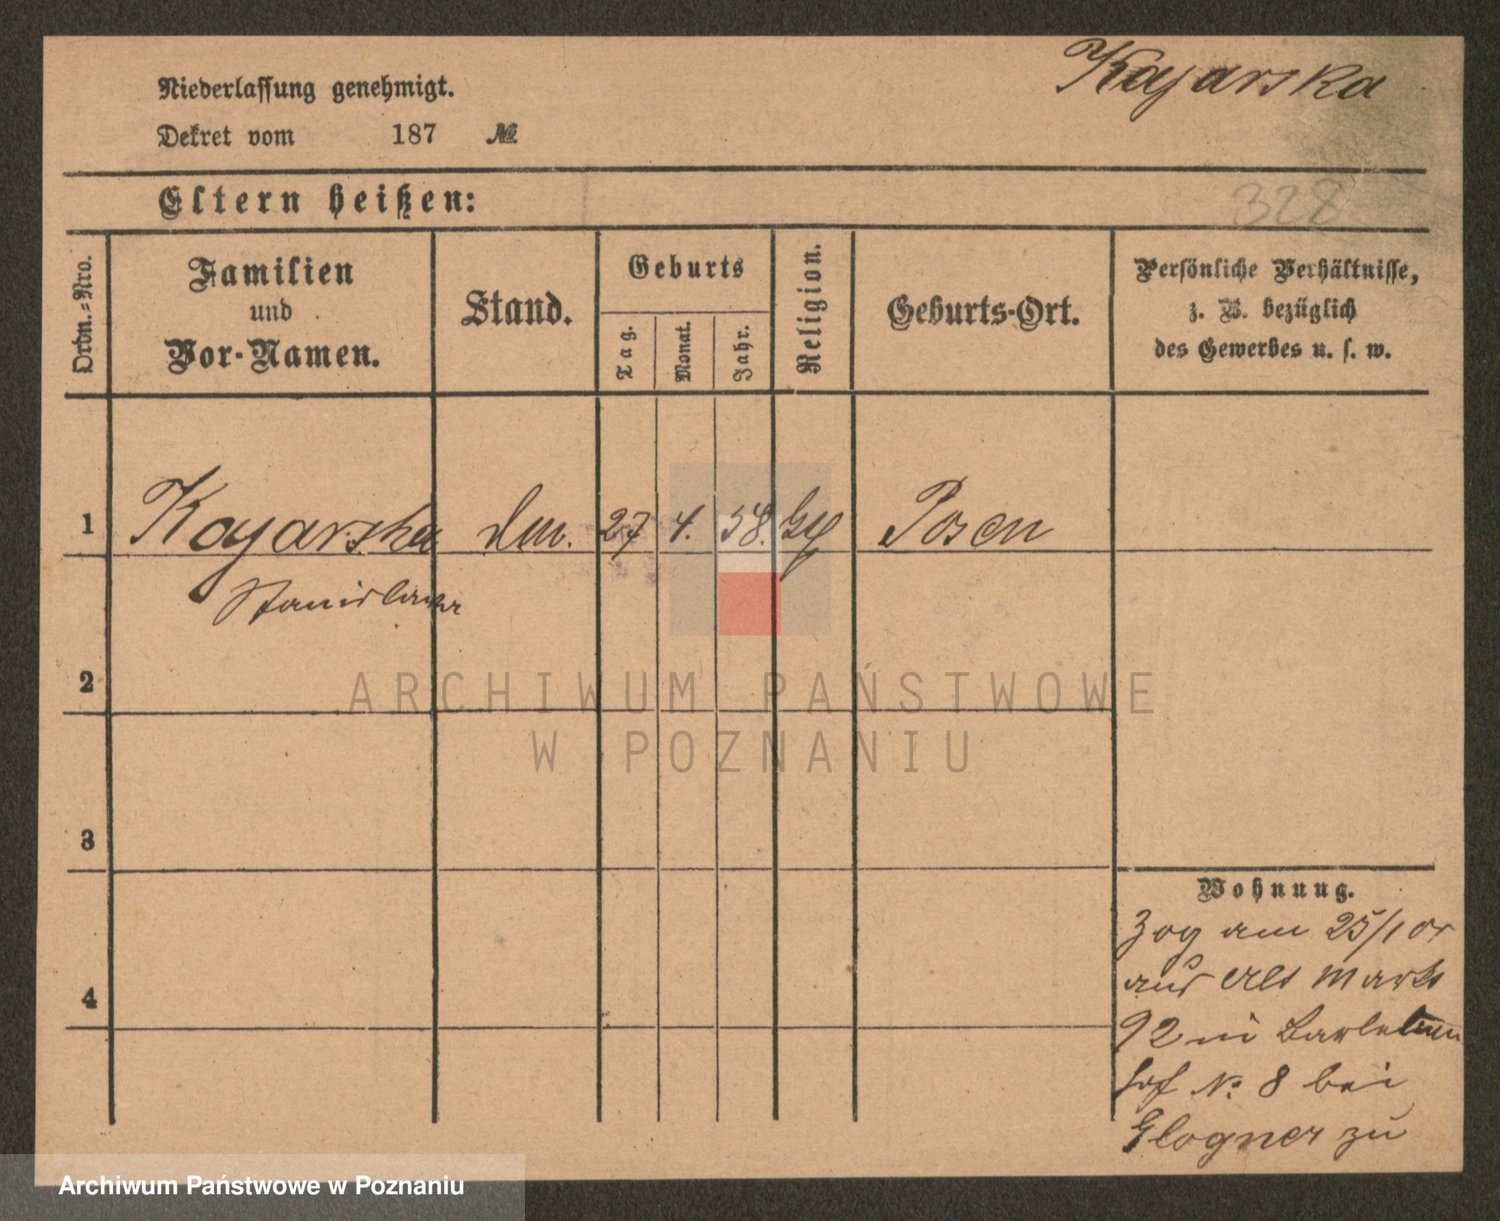 Kayarska
Niederlassung genehmigt.
Dekret vom 187 №
328
Eltern heißen:
Ordn.-Nro.
Familien
und
Vor-Namen.
Stand.
Geburts
Tag.
Monat.
Jahr.
Religion.
Geburts-Ort.
Persönliche Verhältnisse,
z. B. bezüglich
des Gewerbes u. s. w.
1 Kayarska 27 4. 58. Posen
Stanislawa
2
ARCHIWUM PAŃSTWOWE
W POZNANIU
3
Wohnung.
Zog am 25/1
aus Alt Markt
4
92 in
hof № 8 bei
Glogner zu
Archiwum Państwowe w Poznaniu